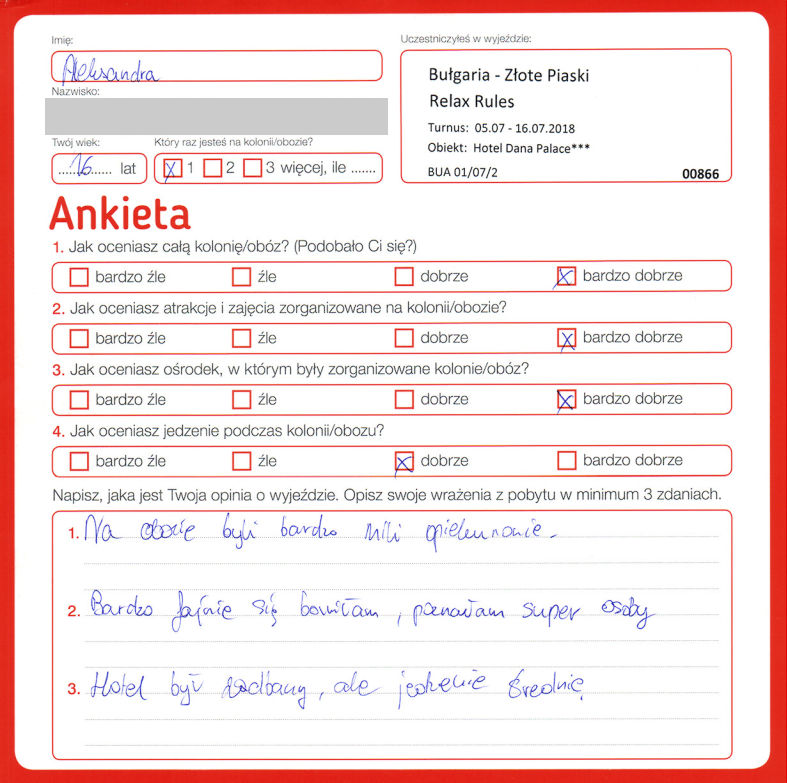 Imię:
Aleksandra
Nazwisko:
Uczestniczyłeś w wyjeździe:
Bułgaria - Złote Piaski
Relax Rules
Turnus: 05.07 - 16.07.2018
Obiekt: Hotel Dana Palace***
BUA 01/07/2 00866
Twój wiek: Który raz jesteś na kolonii/obozie?
......16...... lat 1 2 3 więcej, ile .......
Ankieta
1. Jak oceniasz całą kolonię/obóz? (Podobało Ci się?)
bardzo źle źle dobrze bardzo dobrze
2. Jak oceniasz atrakcje i zajęcia zorganizowane na kolonii/obozie?
bardzo źle źle dobrze bardzo dobrze
3. Jak oceniasz ośrodek, w którym były zorganizowane kolonie/obóz?
bardzo źle źle dobrze bardzo dobrze
4. Jak oceniasz jedzenie podczas kolonii/obozu?
bardzo źle źle dobrze bardzo dobrze
Napisz, jaka jest Twoja opinia o wyjeździe. Opisz swoje wrażenia z pobytu w minimum 3 zdaniach.
1. Na obozie byli bardzo mili opiekunowie.
2. Bardzo fajnie się bawiłam, poznałam super osoby
3. Hotel był zadbany, ale jedzenie średnie